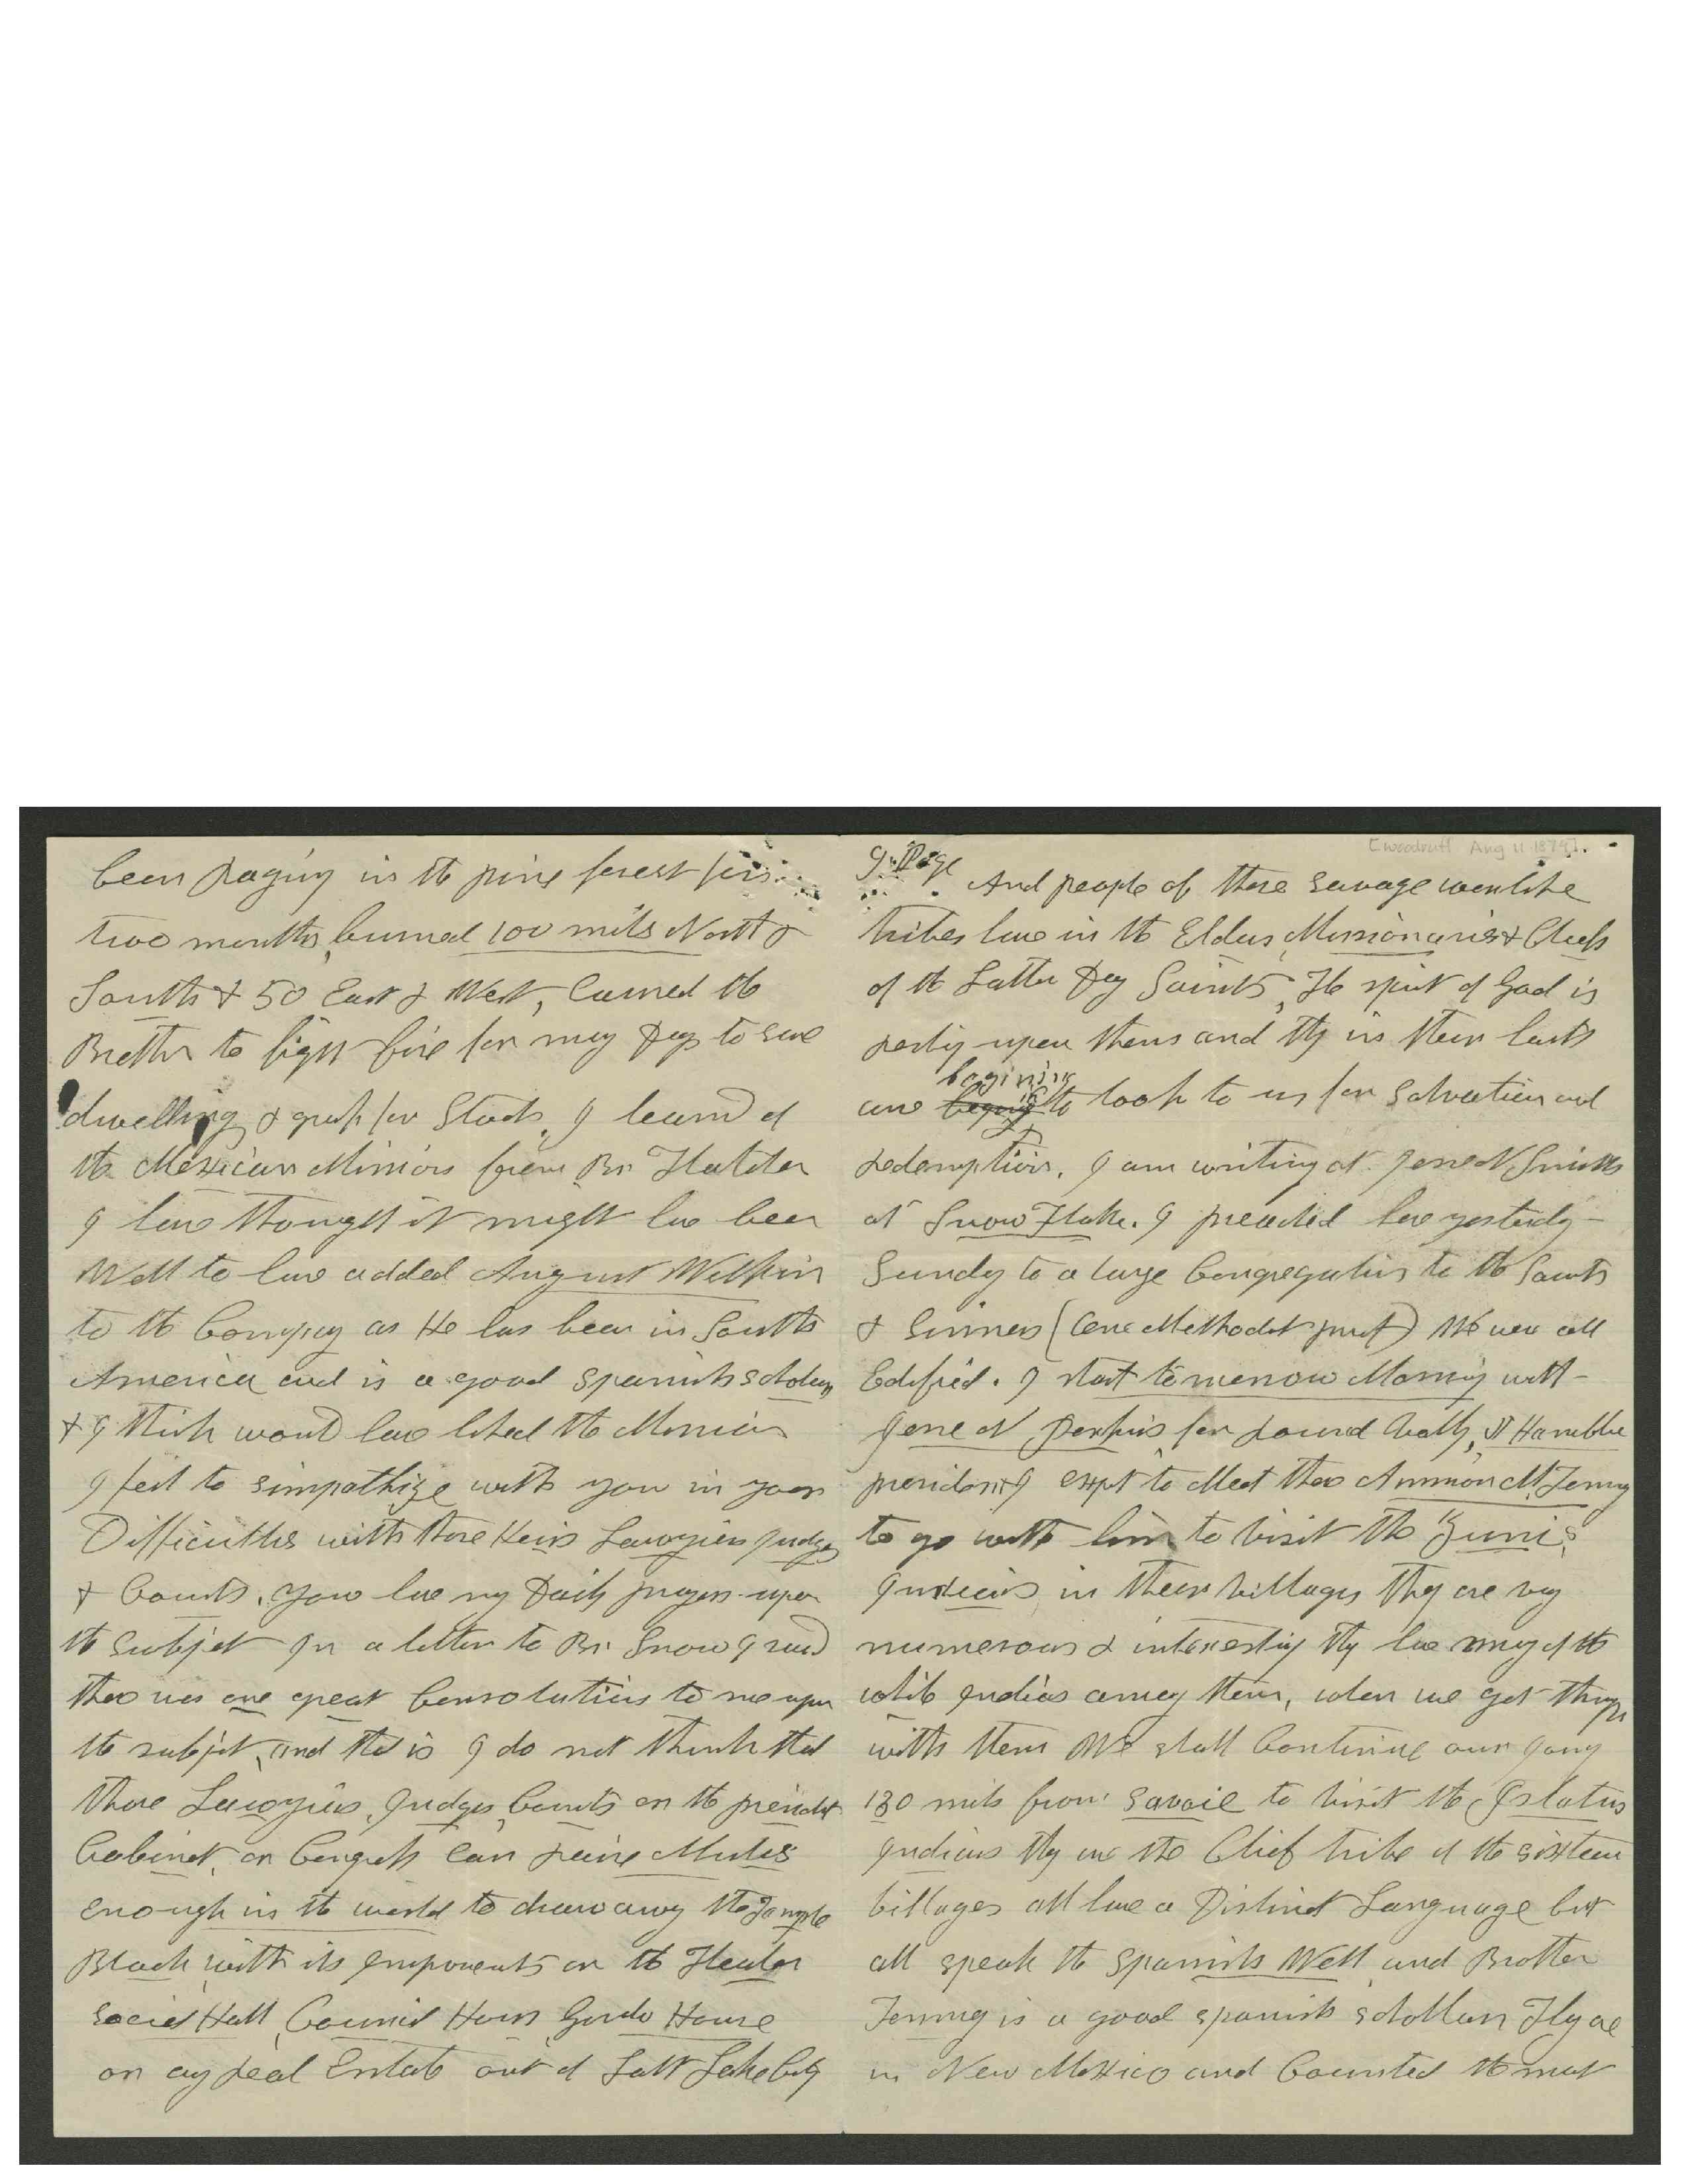 been Raging in the pine forest for
two months, burned 100 mils North &
South & 50 East & West, Caused the
Brethrn to fight fire for many Days to save
dwelling & grass for Stock. I learnd of
the Mexican Mission from Br Hatch
I have thought it might have been
Well to have added August Wilkin
to the Company as He has been in South
America and is a good Spanish scholar
& I think would have liked the Mission
I feel to simpathize with you in your
Difficulties with those Heirs Lawyiers Judges
& Courts. You have my Daily prayers upon
the Subjet In a letter to Br Snow I said
thare was one great Consolution to me upon
the subjet, and that is I do not think that
those Lawyiers, Judges, Courts or the presidet
Cabinet, or Congress Can raise Mules
enough in the world to draw away the Temple
Block with its Improvents or the Theater
Social Hall, Council Hous, Gardo House
or any real Estate out of Salt Lake City
9 Page
[Woodruff Aug 11 1879].
And people of those savage warlike
tribes have in the Elders, Missionaries & Chiefs
of the Latter Day Saints, The spirit of God is
resting upon them and they in their turn
begining
are beging to look to us for Salvation and
redemption. I am writing at Jesse N Smiths
at Snow Flake. I preached here yesterdy -
Sundy to a large Congregation to the Saints
& Sinners (one Methodist priest) We were all
Edified. I start tomorrow Morning with -
Jesse N Perkins for round Vally, W Hamblin
president, I expet to Meet thare Ammon M Tenny
to go with him to visit the Zunis
Indians in their villages they are vey
numerous & interesting they have many of the
white Indians among them, when we get through
with them We shall Continue our Jony
130 mils from Savoie to visit the Islatus
Indians they are the Chief tribe of the sixteen
villages all have a Distinct Language but
all speak the Spanish Well and Brother
Tenny is a good spanish schollar They are
in New Mexico and Counted the most